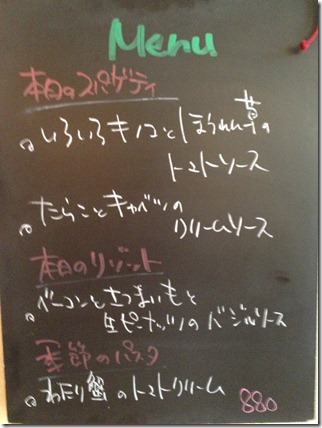 Menu
本日のスパゲティ
いろいろキノコとほうれん草の
トマトソース
たらことキャベツの
クリームソース
本日のリゾット
ベーコンとさつまいもと
生ピーナッツのバジルソース
季節のパスタ
わたり蟹のトマトクリーム
880